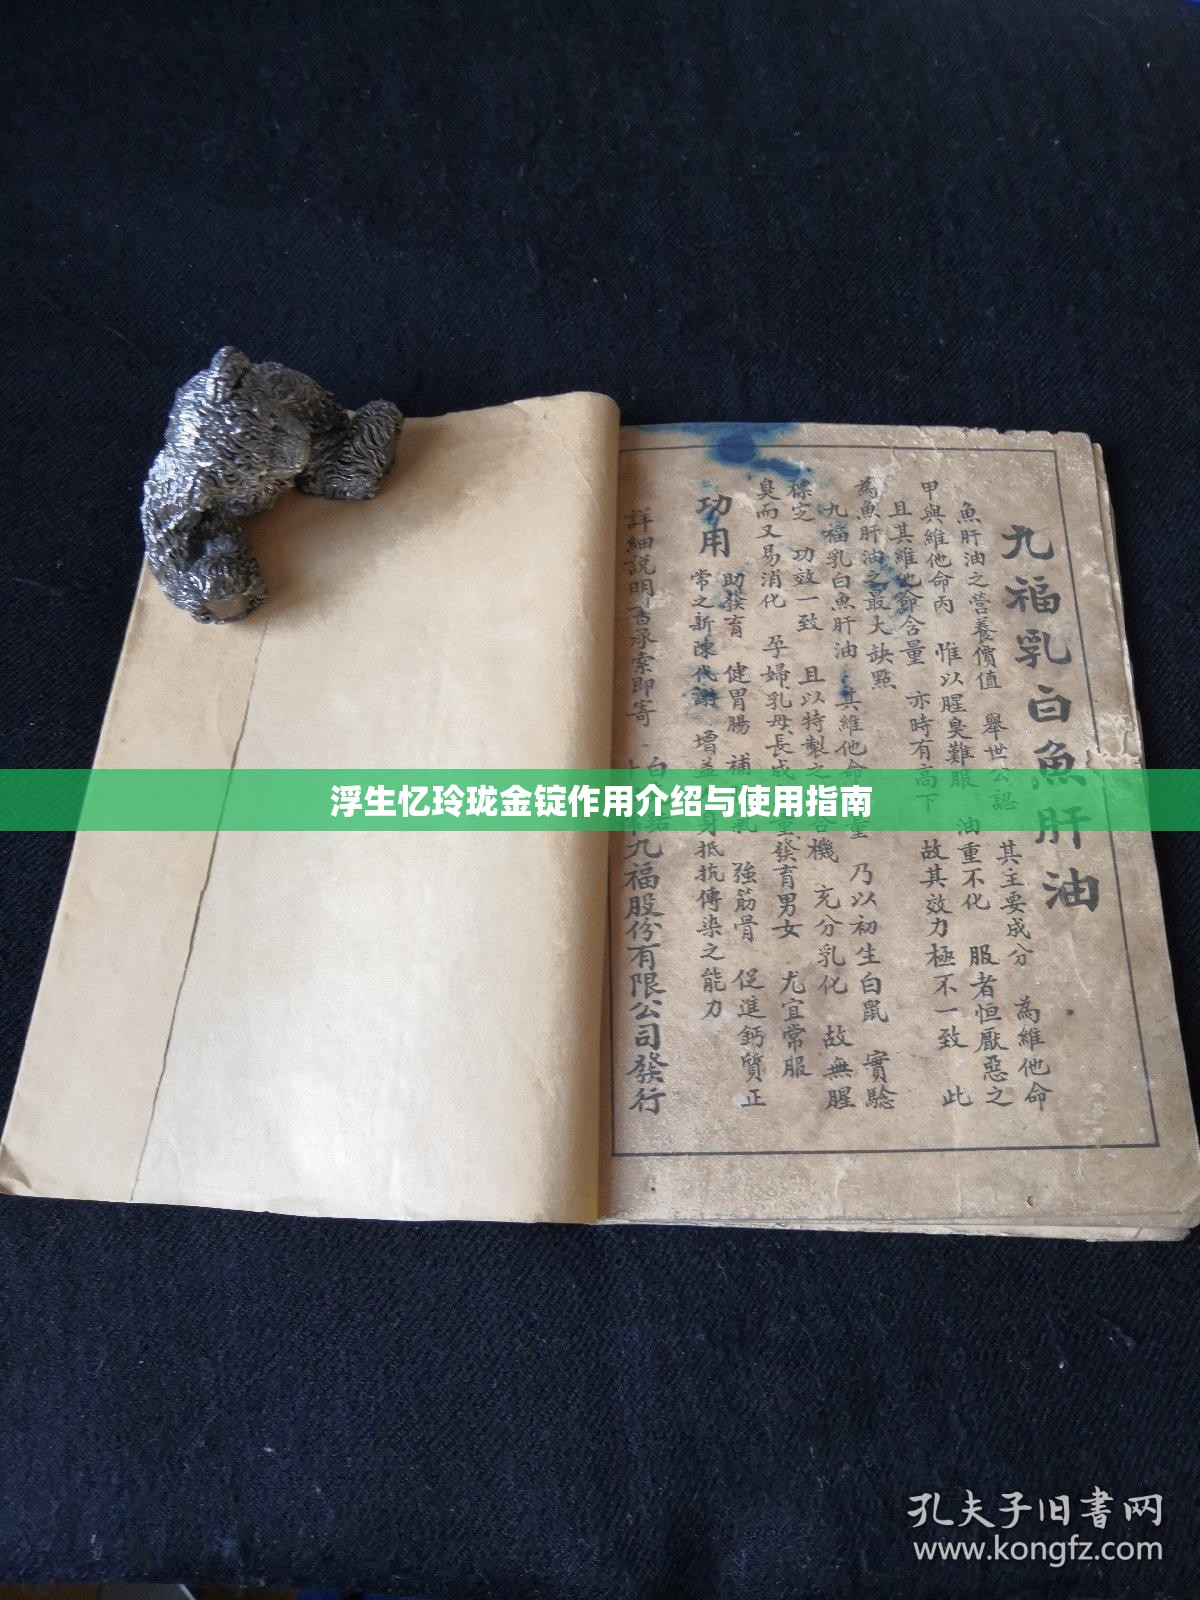 九福乳白魚肝油
魚肝油之營養價值 舉世公認 其主要成分 為維他命
甲與維他命丙 惟以腥臭難服 油重不化 服者恒厭惡之
且其維他命含量 亦時有高下 故其效力極不一致 此
為魚肝油之最大缺點
九福乳白魚肝油 其維他命 量 乃以初生白鼠 實驗
標定 功效一致 且以特製之 合機 充分乳化 故無腥
臭而又易消化 孕婦乳母長成 童發育男女 尤宜常服
功用
助發育 健胃腸 補 氣 強筋骨 促進鈣質正
常之新陳代謝 增益 身抵抗傳染之能力
詳細說明書承索即寄 九福股份有限公司發行
浮生忆玲珑金锭作用介绍与使用指南
孔夫子旧书网
www.kongfz.com